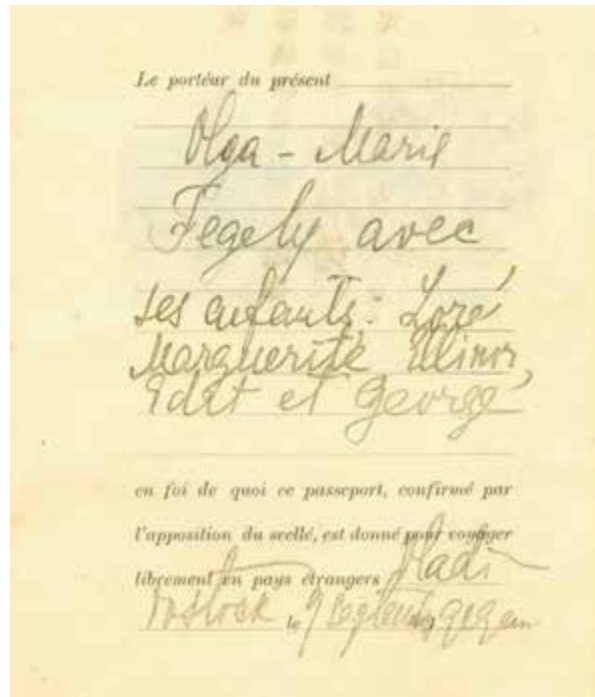 Le portéur du présent
Olga - Marie
Fegely avec
ses enfants: Loré
Marguerite Ellinor,
Edit et Georgé
en foi de quoi ce passeport, confirmé par
l'apposition du scellé, est donné pour voyager
librement en pays étrangers Vladi-
vostock le 9 Septemb 1919